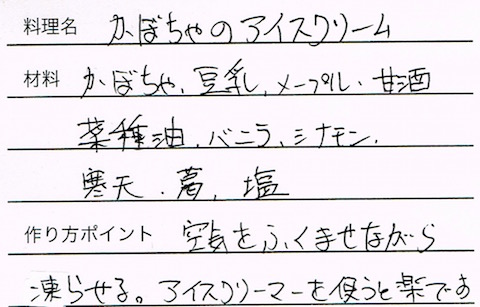 料理名 かぼちゃのアイスクリーム
材料 かぼちゃ、豆乳、メープル・甘酒
菜種油、バニラ、シナモン、
寒天、葛、塩
作り方ポイント 空気をふくませながら
凍らせる。アイスクリーマーを使うと楽です